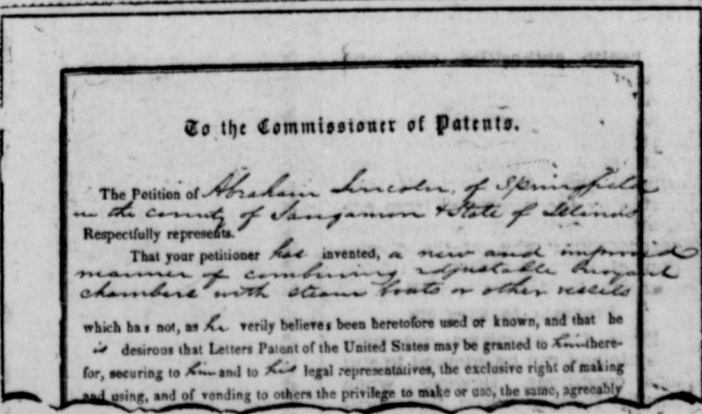 To the Commissioner of Patents.
The Petition of Abraham Lincoln, of Springfield
in the county of Sangamon & State of Illinois
Respectfully represents.
That your petitioner has invented, a new and improved
manner of combining adjustable buoyant
chambers with steam boats or other vessels
which has not, as he verily believes been heretofore used or known, and that he
is desirous that Letters Patent of the United States may be granted to him there-
for, securing to him and to his legal representatives, the exclusive right of making
and using, and of vending to others the privilege to make or use, the same, agreeably